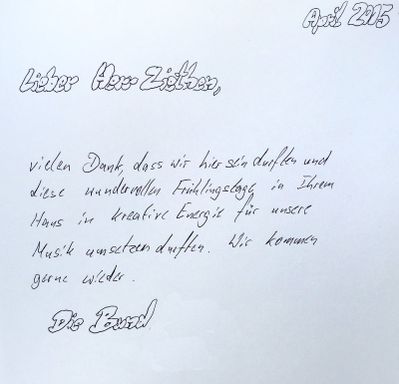 April 2005
Lieber Herr Ziethen,
vielen Dank, dass wir hier sein durften und
diese wundervollen Frühlingstage in Ihrem
Haus in kreative Energie für unsere
Musik umsetzen durften. Wir kommen
gerne wieder.
Die Band